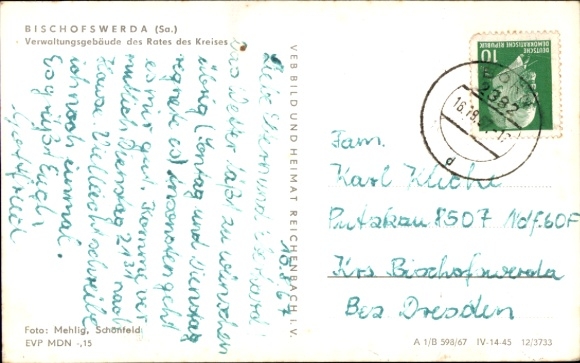 BISCHOFSWERDA (Sa.)
Verwaltungsgebäude des Rates des Kreises
10.8.67
Liebe Eltern und
das Wetter läßt zu wünschen
übrig (Montag und Dienstag
regnete es) ansonsten geht
es mir gut. Komme ver-
mutlich Dienstag 21³¹ nach
Hause. Vielleicht schreibe
ich noch einmal.
Es grüßt Euch
Gottfried
Foto: Mehlig, Schönfeld
EVP MDN -,15
VEB BILD UND HEIMAT REICHENBACH I. V.
DEUTSCHE DEMOKRATISCHE REPUBLIK
10
2382
Fam.
Karl Kliche
Putzkau 8507 Ndf. 60F
Krs Bischofswerda
Bez Dresden
A 1/B 598/67 IV-14-45 12/3733